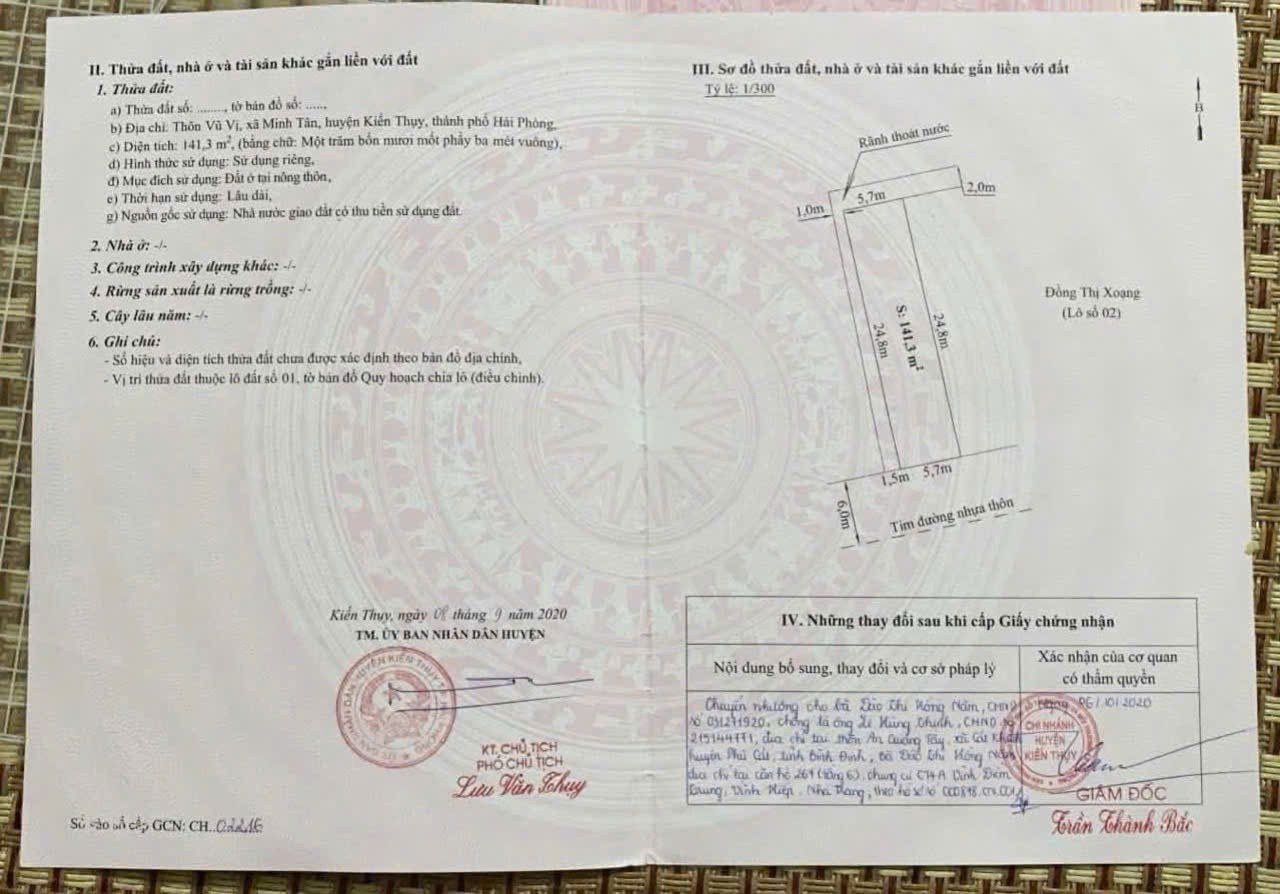 II. Thửa đất, nhà ở và tài sản khác gắn liền với đất
1. Thửa đất:
a) Thửa đất số: ........, tờ bản đồ số: .....,
b) Địa chỉ: Thôn Vũ Vị, xã Minh Tân, huyện Kiến Thụy, thành phố Hải Phòng,
c) Diện tích: 141,3 m², (bằng chữ: Một trăm bốn mươi mốt phẩy ba mét vuông),
d) Hình thức sử dụng: Sử dụng riêng,
đ) Mục đích sử dụng: Đất ở tại nông thôn,
e) Thời hạn sử dụng: Lâu dài,
g) Nguồn gốc sử dụng: Nhà nước giao đất có thu tiền sử dụng đất.
2. Nhà ở: -/-
3. Công trình xây dựng khác: -/-
4. Rừng sản xuất là rừng trồng: -/-
5. Cây lâu năm: -/-
6. Ghi chú:
- Số hiệu và diện tích thửa đất chưa được xác định theo bản đồ địa chính,
- Vị trí thửa đất thuộc lô đất số 01, tờ bản đồ Quy hoạch chia lô (điều chỉnh).
Kiến Thụy, ngày 08 tháng 9 năm 2020
TM. ỦY BAN NHÂN DÂN HUYỆN
KT. CHỦ TỊCH
PHÓ CHỦ TỊCH
Lưu Văn Thụy
Số vào sổ cấp GCN: CH..02216
III. Sơ đồ thửa đất, nhà ở và tài sản khác gắn liền với đất
Tỷ lệ: 1/300
B
Rãnh thoát nước
1,0m
5,7m
2,0m
Đồng Thị Xoạng
(Lô số 02)
24,8m
S: 141,3 m²
24,8m
1,5m
5,7m
6,0m
Tim đường nhựa thôn
IV. Những thay đổi sau khi cấp Giấy chứng nhận
Nội dung bổ sung, thay đổi và cơ sở pháp lý
Xác nhận của cơ quan
có thẩm quyền
Chuyển nhượng cho bà Đào Thị Hồng Nấm, CMND
số 031271920, chồng là ông Lê Hùng Thịnh, CMND số
215144771, địa chỉ tại thôn An Quang Tây, xã Cát Khánh
huyện Phù Cát, tỉnh Bình Định, bà Đào Thị Hồng Nấm
địa chỉ tại căn hộ 261 (tầng 6), chung cư CT4A Vĩnh Điềm
Trung, Vĩnh Hiệp, Nha Trang, theo hồ sơ số
Ngày 06/10/2020
CHI NHÁNH
HUYỆN
KIẾN THỤY
GIÁM ĐỐC
Trần Thành Bắc